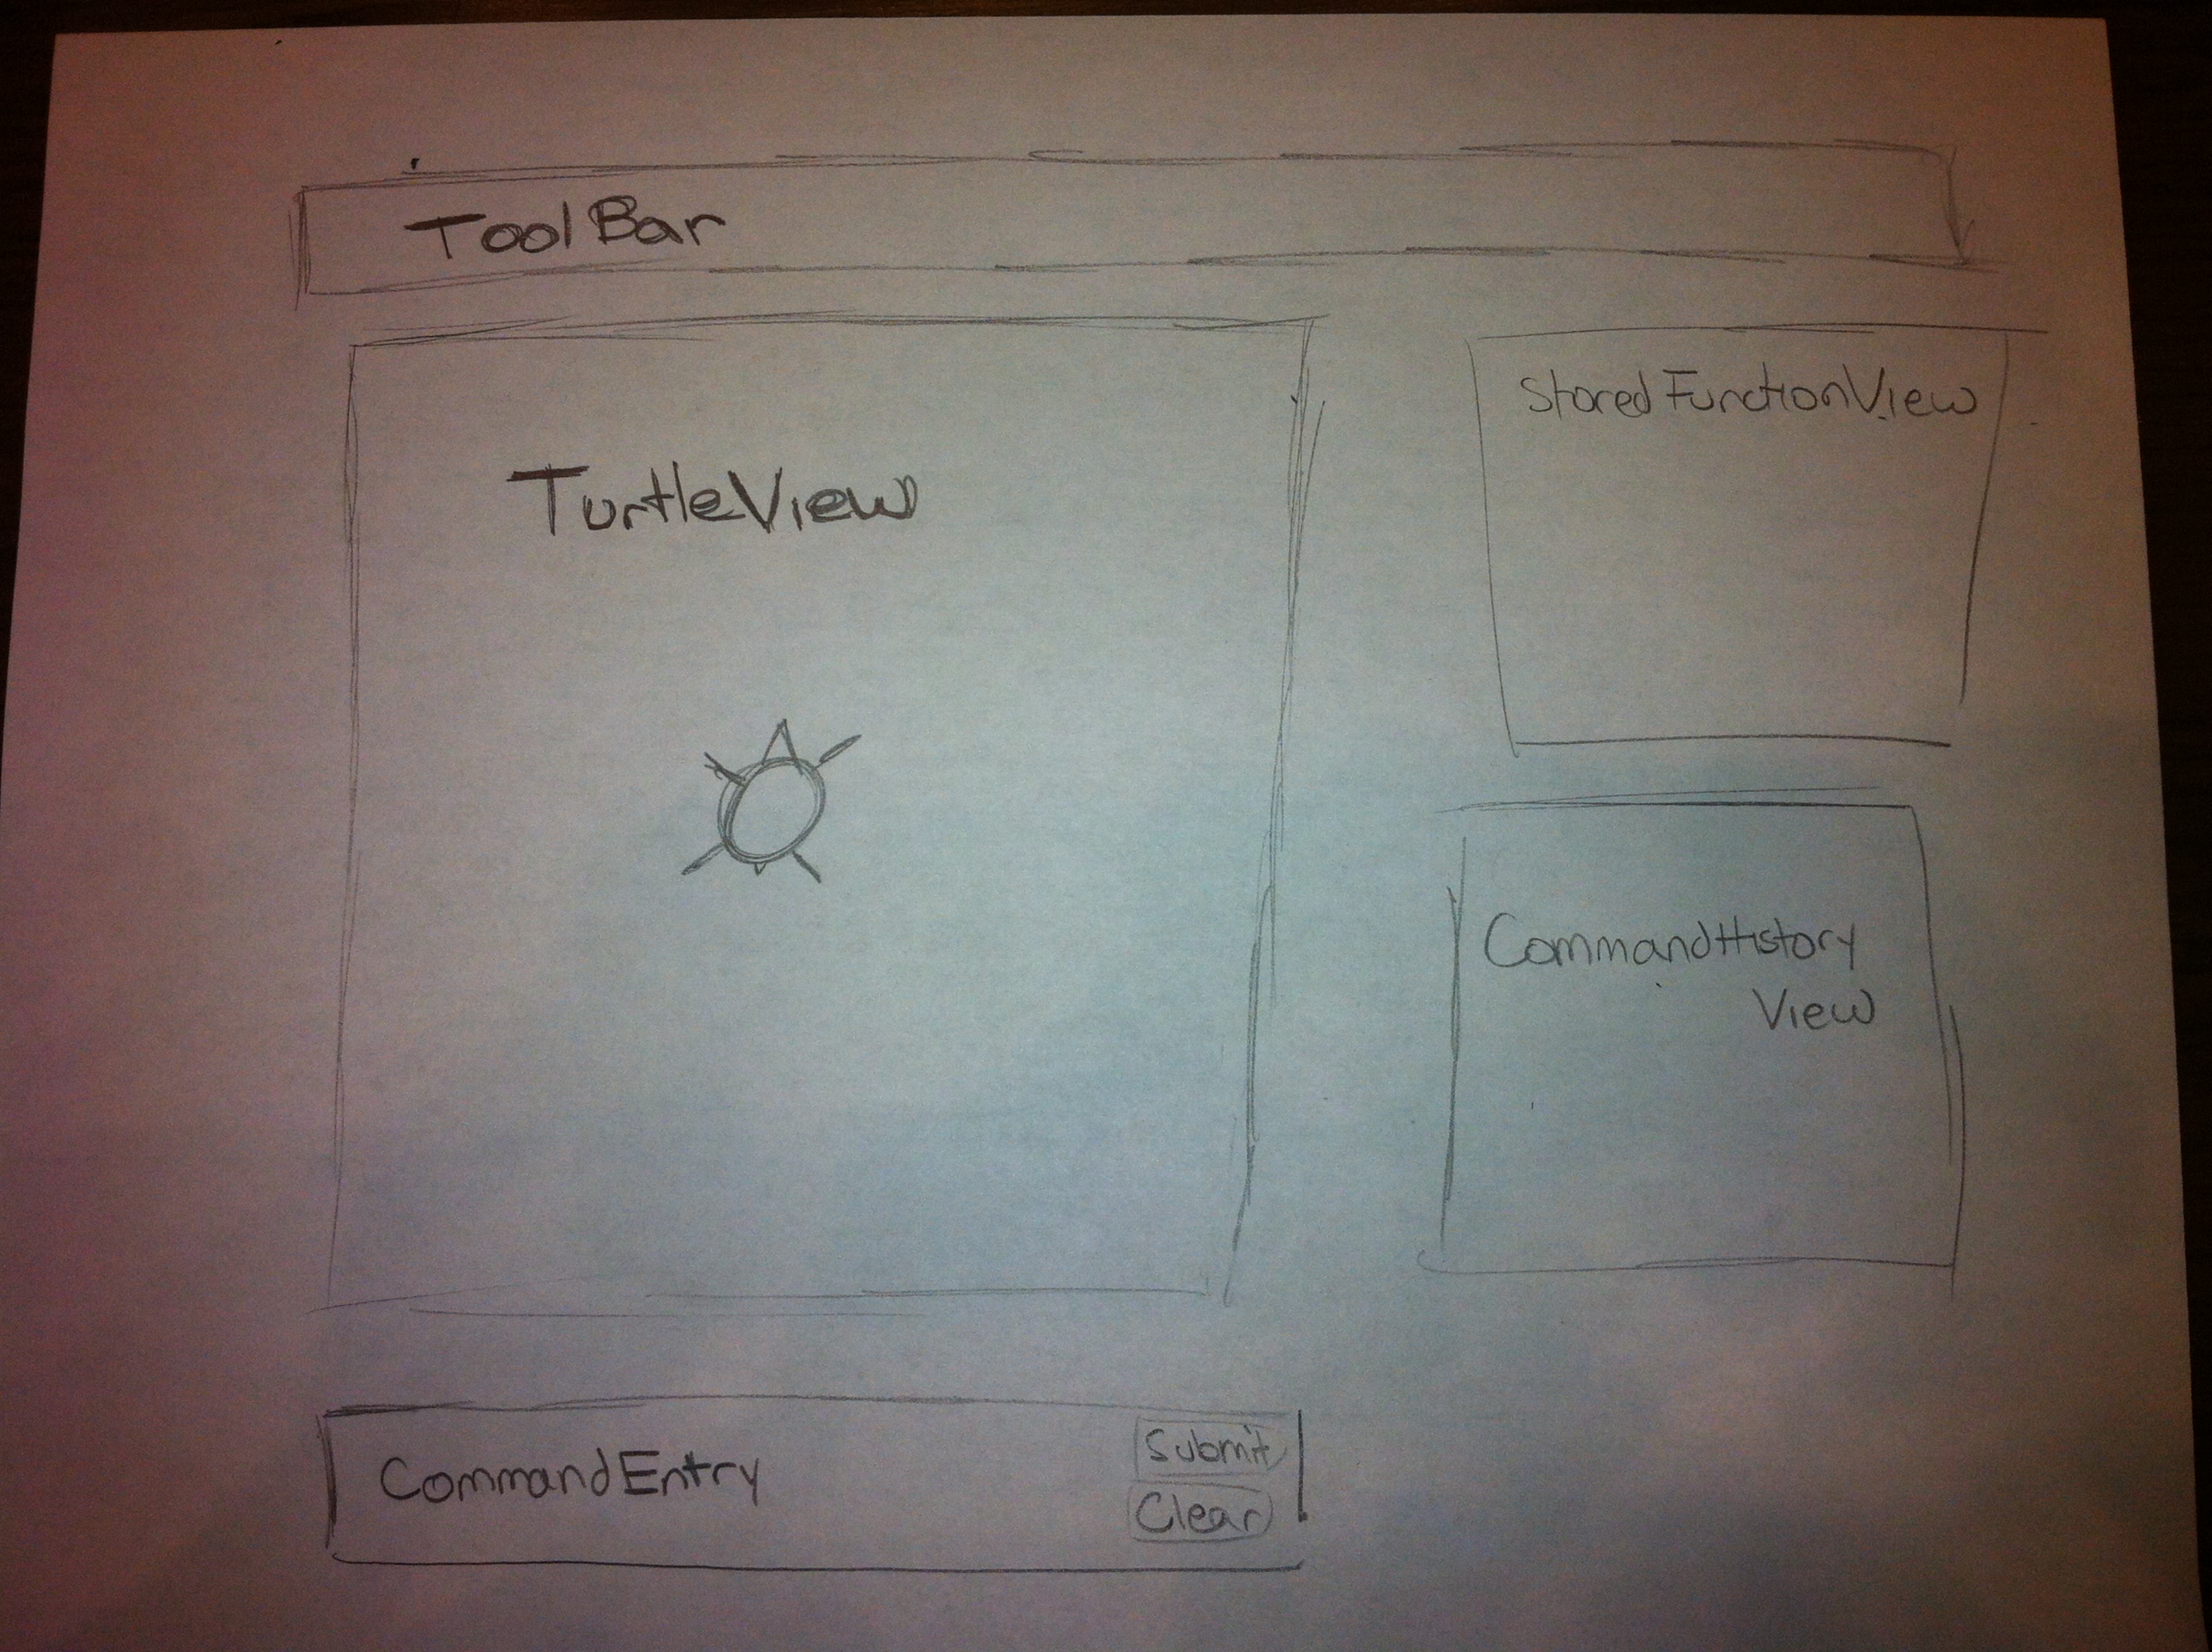 ToolBar
TurtleView
StoredFunctionView
CommandHistory
View
CommandEntry
Submit
Clear